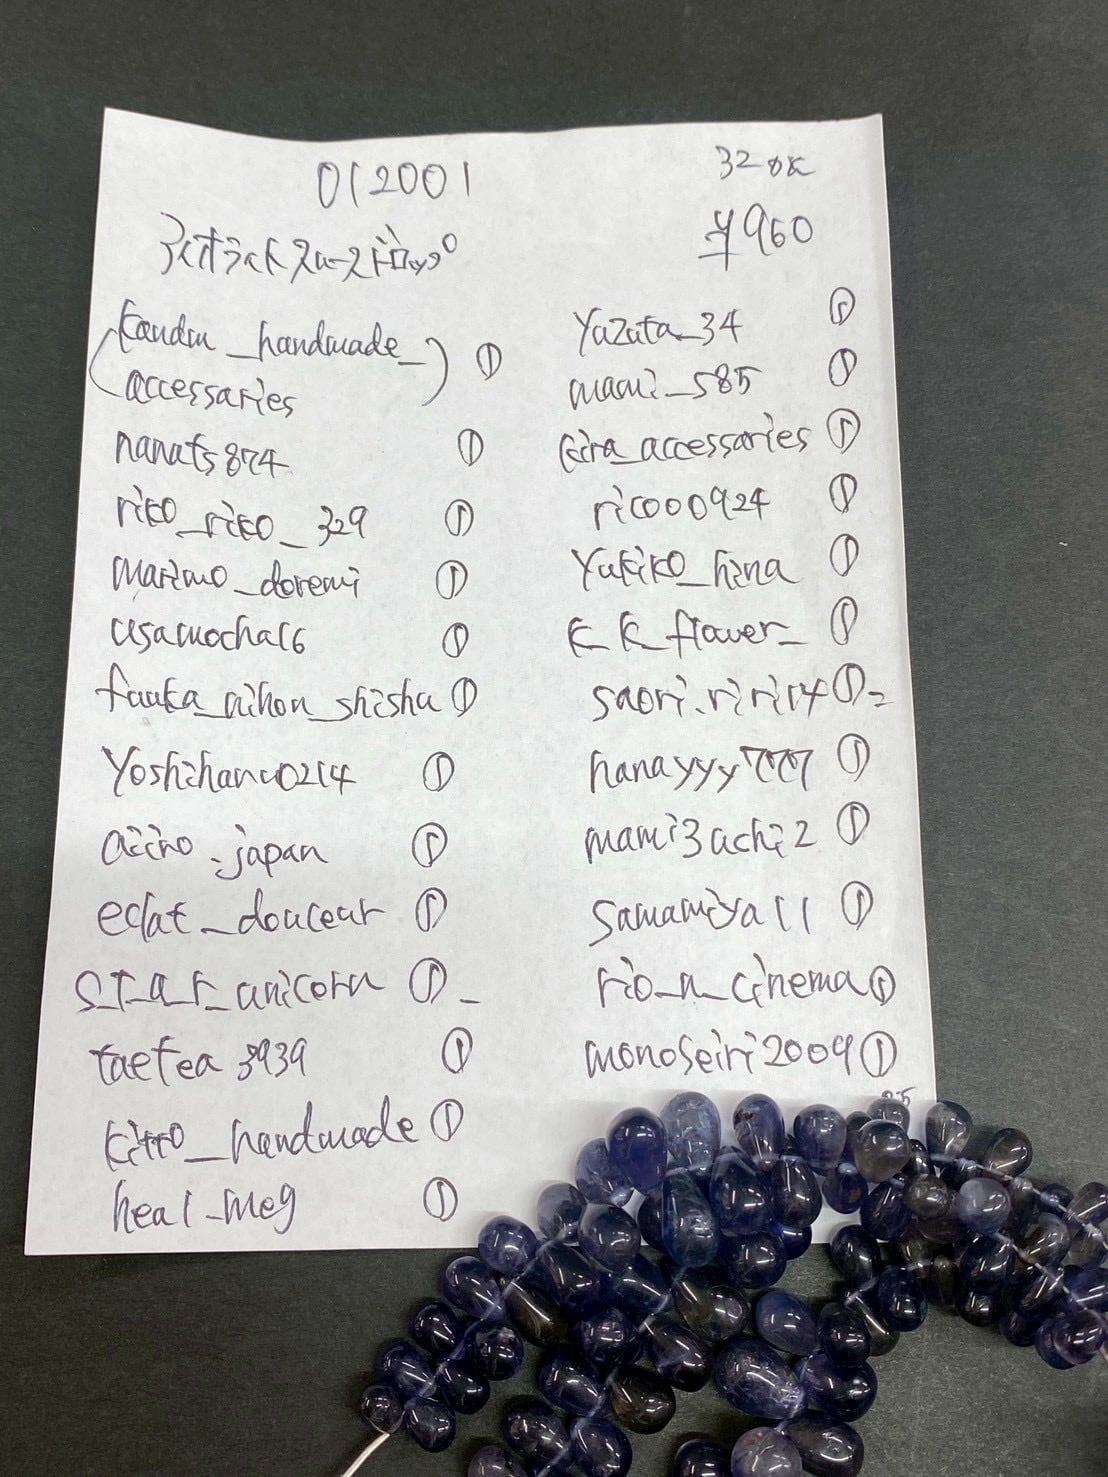 012001
32 OK
¥960
アイオライトスムースドロップ
kandm_handmade_ ①
accessaries
nanats874 ①
riko_riko_329 ①
marimo_doremi ①
usamocha16 ①
fuuka_nihon_shisha ①
yoshihanc0214 ①
aiiro.japan ①
eclat_douceur ①
s_t_a_r_unicorn ①
taetea3939 ①
kitto_handmade ①
heal_meg ①
yazata_34 ①
mami_s85 ①
kira_accessaries ①
rico00924 ①
yukiko_hina ①
k_k_flower_ ①
saori.riri14 ①
hanayyy777 ①
mami3achi2 ①
samamiya11 ①
rio_n_cinema ①
monoseiri2009 ①